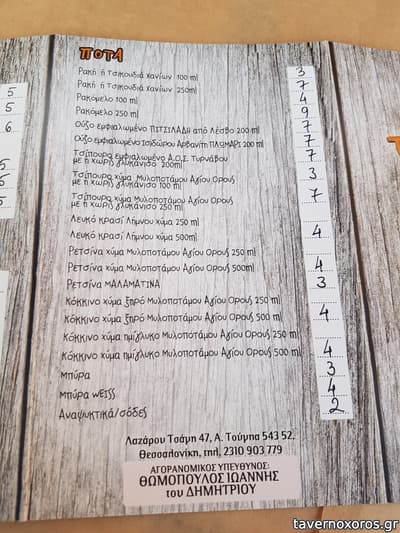 ΠΟΤΑ
Ρακή ή Τσικουδιά Χανίων 100 ml 3
Ρακή ή Τσικουδιά Χανίων 250ml 7
Ρακόμελο 100 ml 4
Ρακόμελο 250 ml 9
Ούζο εμφιαλωμένο ΠΙΤΣΙΛΑΔΗ από Λέσβο 200 ml 7
Ούζο εμφιαλωμένο Ισιδώρου Αρβανίτη ΠΛΩΜΑΡΙ 200 ml 7
Τσίπουρο εμφιαλωμένο Α.Ο.Σ. Τυρνάβου
με ή χωρίς γλυκάνισο 200ml 7
Τσίπουρο χύμα Μυλοποτάμου Αγίου Όρους
με ή χωρίς γλυκάνισο 100 ml 3
Τσίπουρο χύμα Μυλοποτάμου Αγίου Όρους
με ή χωρίς γλυκάνισο 250 ml 7
Λευκό κρασί Λήμνου χύμα 250 ml
Λευκό κρασί Λήμνου χύμα 500ml 4
Ρετσίνα χύμα Μυλοποτάμου Αγίου Όρους 250 ml
Ρετσίνα χύμα Μυλοποτάμου Αγίου Όρους 500ml 4
Ρετσίνα ΜΑΛΑΜΑΤΙΝΑ 3
Κόκκινο χύμα ξηρό Μυλοποτάμου Αγίου Όρους 250 ml
Κόκκινο χύμα ξηρό Μυλοποτάμου Αγίου Όρους 500 ml 4
Κόκκινο χύμα ημίγλυκο Μυλοποτάμου Αγίου Όρους 250 ml
Κόκκινο χύμα ημίγλυκο Μυλοποτάμου Αγίου Όρους 500 ml 4
Μπύρα 3
Μπύρα WEISS 4
Αναψυκτικά/σόδες 2
Λαζάρου Τσάμη 47, Α. Τούμπα 543 52,
Θεσσαλονίκη, τηλ. 2310 903 779
ΑΓΟΡΑΝΟΜΙΚΟΣ ΥΠΕΥΘΥΝΟΣ:
ΘΩΜΟΠΟΥΛΟΣ ΙΩΑΝΝΗΣ
του ΔΗΜΗΤΡΙΟΥ
5
5
6
5
5
5
tavernoxoros.gr